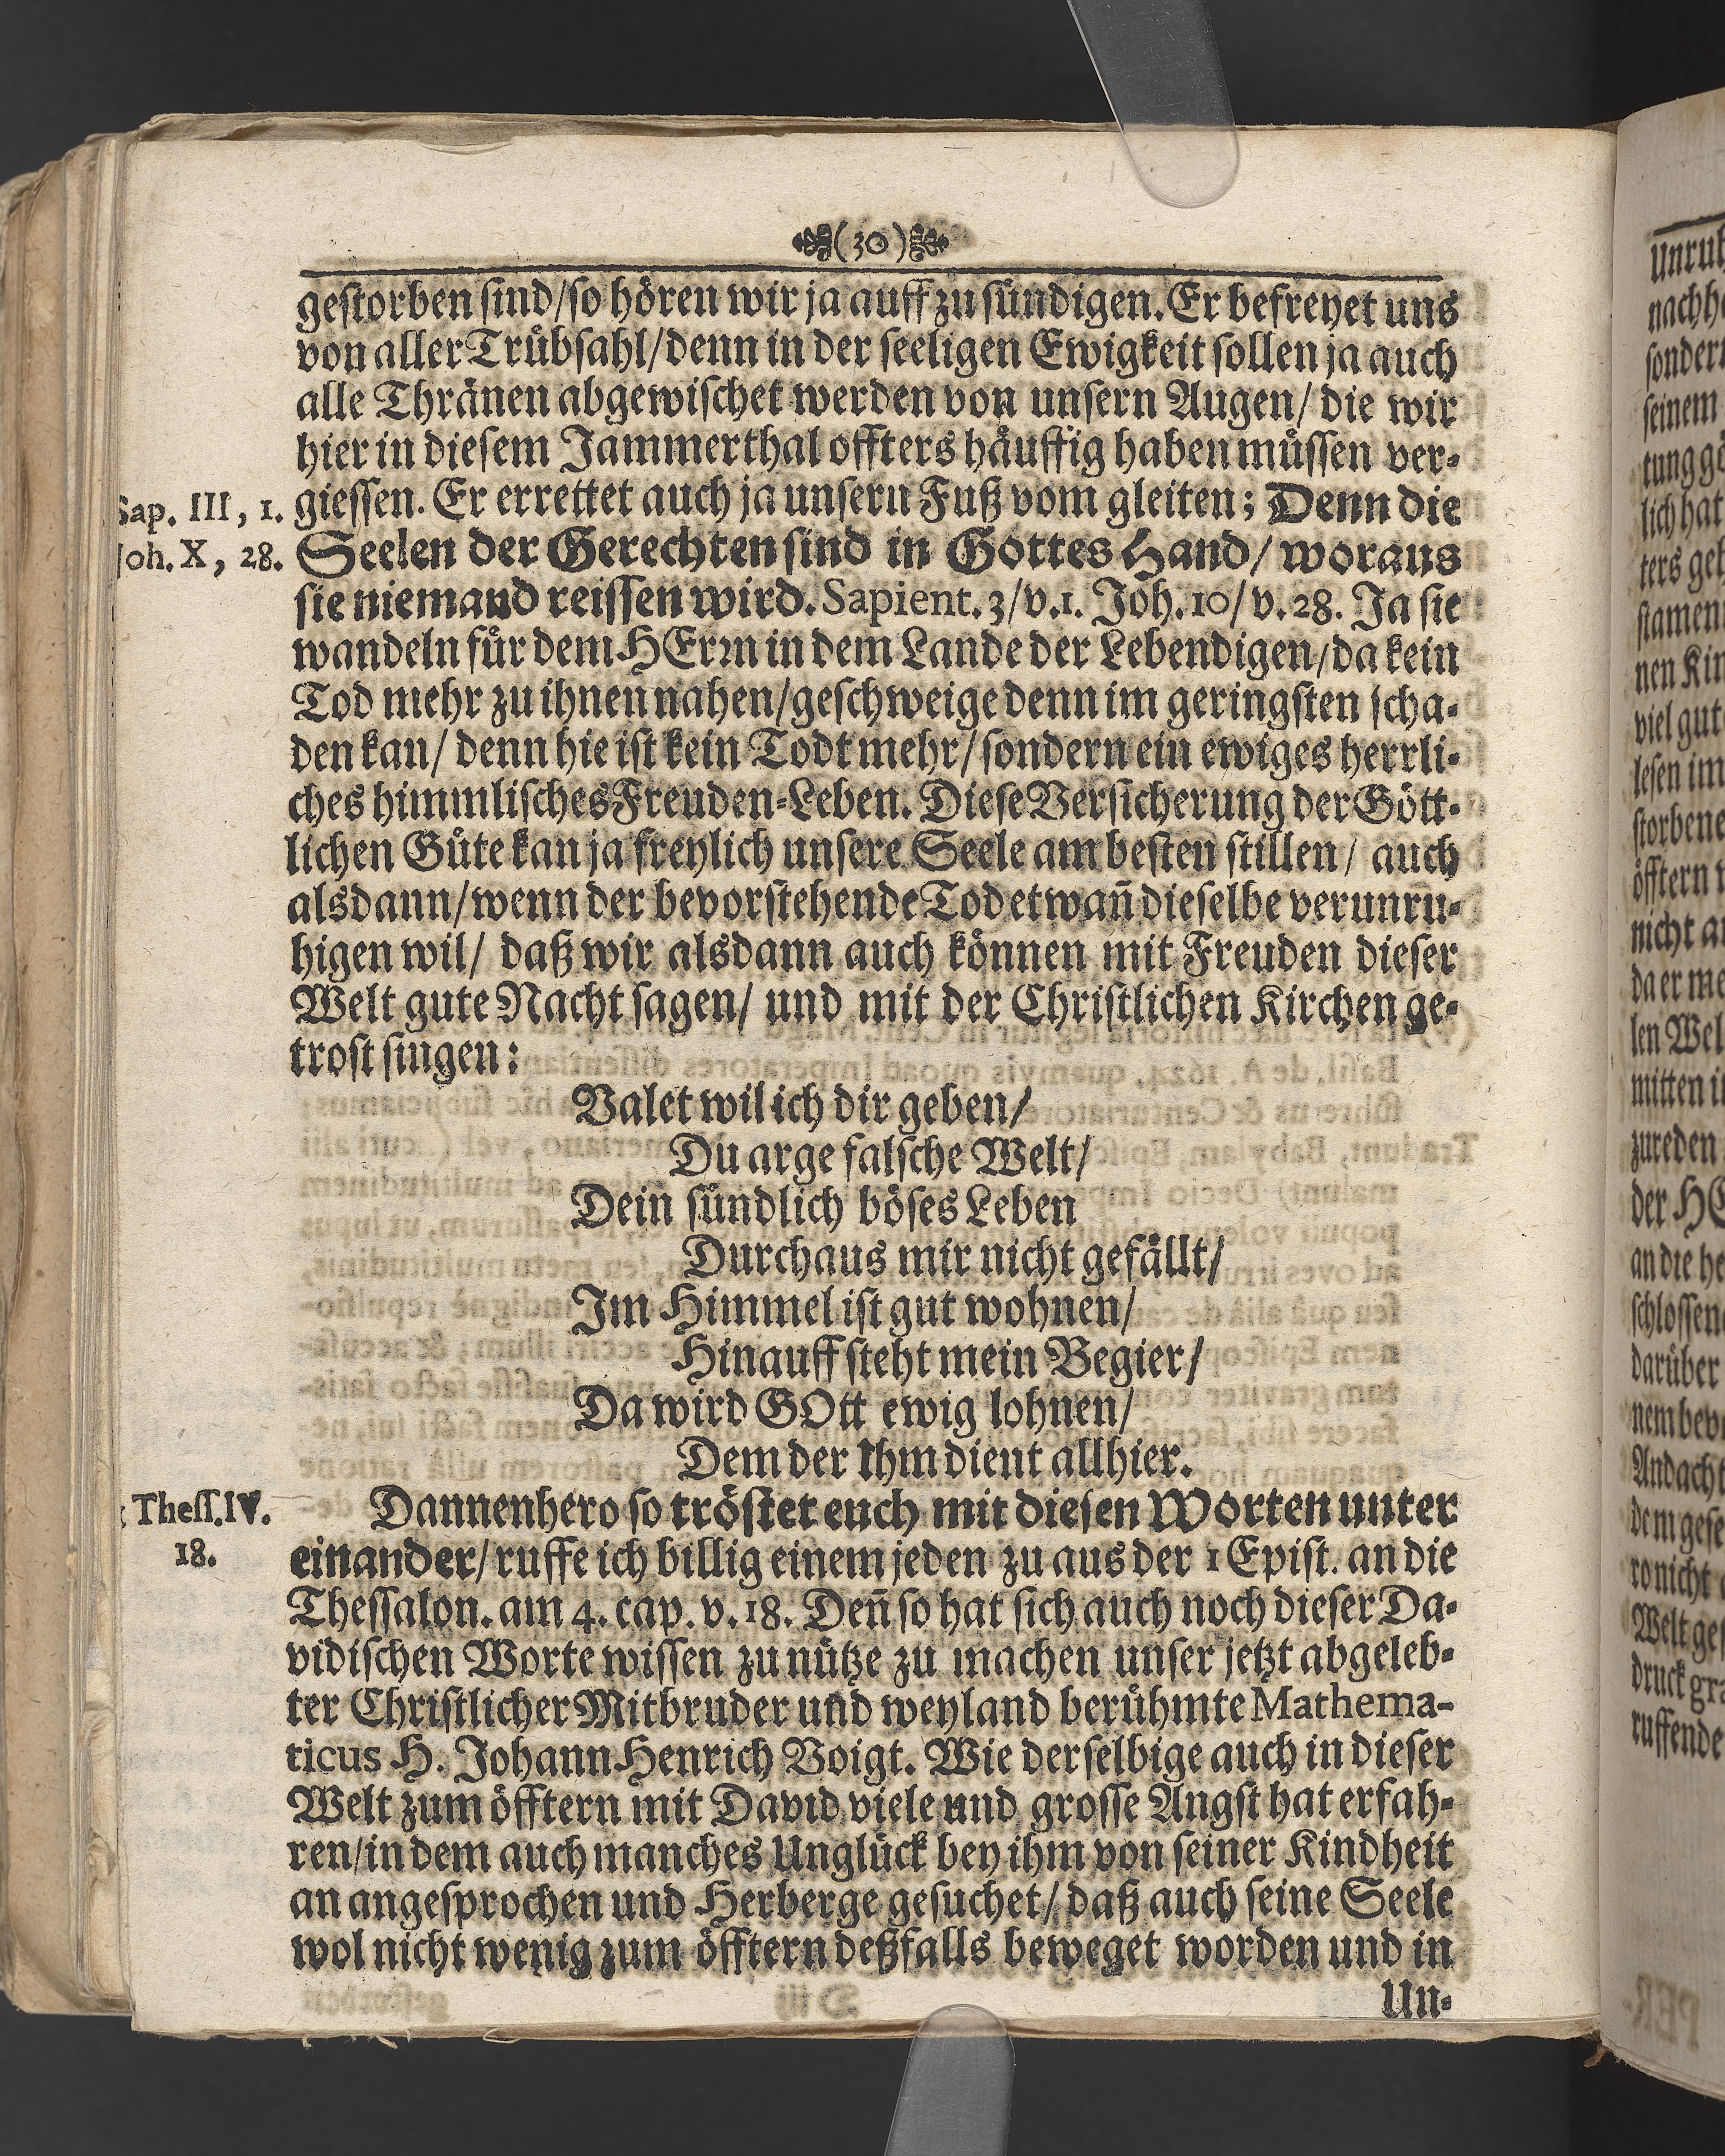 (30)
gestorben sind/so hören wir ja auff zu sündigen. Er befreyet uns
von aller Trübsahl/denn in der seeligen Ewigkeit sollen ja auch
alle Thränen abgewischet werden von unsern Augen/ die wir
hier in diesem Jammerthal offters häuffig haben müssen ver-
Sap. III, 1.
giessen. Er errettet auch ja unsern Fuß vom gleiten; Denn die
Joh. X, 28.
Seelen der Gerechten sind in Gottes Hand/ woraus
sie niemand reissen wird. Sapient. 3/v.1. Joh. 10/ v. 28. Ja sie
wandeln für dem HErrn in dem Lande der Lebendigen/da kein
Tod mehr zu ihnen nahen/geschweige denn im geringsten scha-
den kan/ denn hie ist kein Todt mehr/ sondern ein ewiges herrli-
ches himmlisches Freuden-Leben. Diese Versicherung der Gött-
lichen Güte kan ja freylich unsere Seele am besten stillen/ auch
alsdann/wenn der bevorstehende Tod etwañ dieselbe verunru-
higen wil/ daß wir alsdann auch können mit Freuden dieser
Welt gute Nacht sagen/ und mit der Christlichen Kirchen ge-
trost singen:
Valet wil ich dir geben/
Du arge falsche Welt/
Dein sündlich böses Leben
Durchaus mir nicht gefällt/
Im Himmel ist gut wohnen/
Hinauff steht mein Begier/
Da wird GOtt ewig lohnen/
Dem der Ihm dient allhier.
Thess. IV.
18.
Dannenhero so tröstet euch mit diesen Worten unter
einander/ ruffe ich billig einem jeden zu aus der 1 Epist. an die
Thessalon. am 4. cap. v. 18. Deñ so hat sich auch noch dieser Da-
vidischen Worte wissen zu nütze zu machen unser jetzt abgeleb-
ter Christlicher Mitbruder und weyland berühmte Mathema-
ticus H. Johann Henrich Voigt. Wie derselbige auch in dieser
Welt zum öfftern mit David viele und grosse Angst hat erfah-
ren/in dem auch manches Unglück bey ihm von seiner Kindheit
an angesprochen und Herberge gesuchet/ daß auch seine Seele
wol nicht wenig zum öfftern deßfalls beweget worden und in
Un-